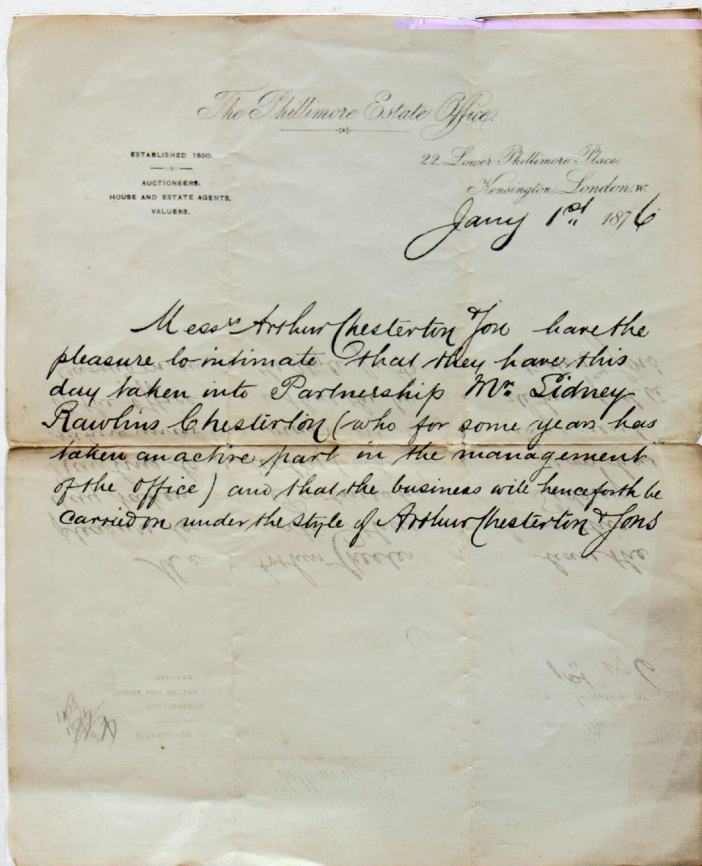 The Phillimore Estate Office.
ESTABLISHED 1830.
AUCTIONEERS,
HOUSE AND ESTATE AGENTS,
VALUERS.
22. Lower Phillimore Place,
Kensington, London, W.
Jany 1st 1876
Messrs Arthur Chesterton & Son have the
pleasure to intimate that they have this
day taken into Partnership Mr. Sidney
Rawlins Chesterton (who for some years has
taken an active part in the management
of the office) and that the business will henceforth be
carried on under the style of Arthur Chesterton & Sons